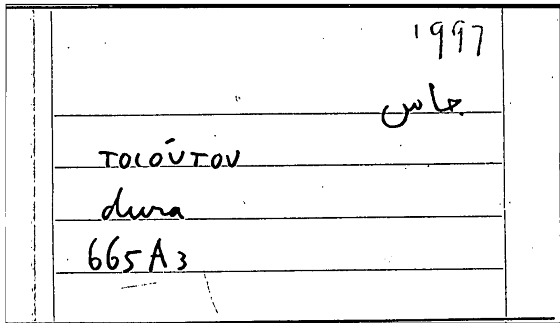 1997
جاس
τοιούτου
dura
665A3